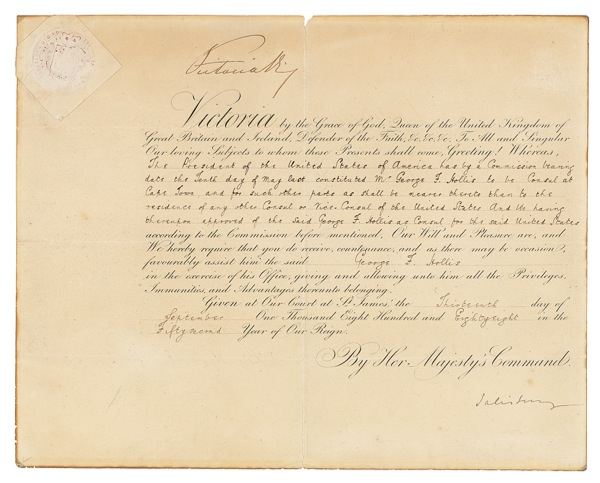 Victoria R
Victoria by the Grace of God, Queen of the United Kingdom of
Great Britain and Ireland, Defender of the Faith, &c. &c. &c. To All and Singular
Our loving Subjects to whom these Presents shall come, Greeting! Whereas,
The President of the United States of America has by a Commission bearing
date the Tenth day of May last, constituted Mr. George F. Hollis to be Consul at
Cape Town, and for such other parts as shall be nearer thereto than to the
residence of any other Consul or Vice-Consul of the United States And We having
thereupon approved of the said George F. Hollis as Consul for the said United States
according to the Commission before mentioned, Our Will and Pleasure are, and
We hereby require that you do receive, countenance, and as there may be occasion,
favourably assist him the said George F. Hollis
in the exercise of his Office, giving and allowing unto him all the Privileges,
Immunities, and Advantages thereunto belonging.
Given at Our Court at St. James', the Thirteenth day of
September One Thousand Eight Hundred and Eightyeight in the
Fiftysecond Year of Our Reign.
By Her Majesty's Command.
Salisbury